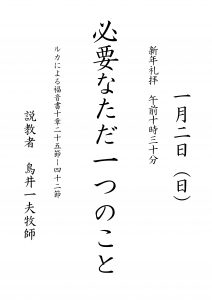 一月二日(日)
新年礼拝 午前十時三十分
必要なただ一つのこと
ルカによる福音書十章二十五節~四十二節
説教者 鳥井一夫牧師